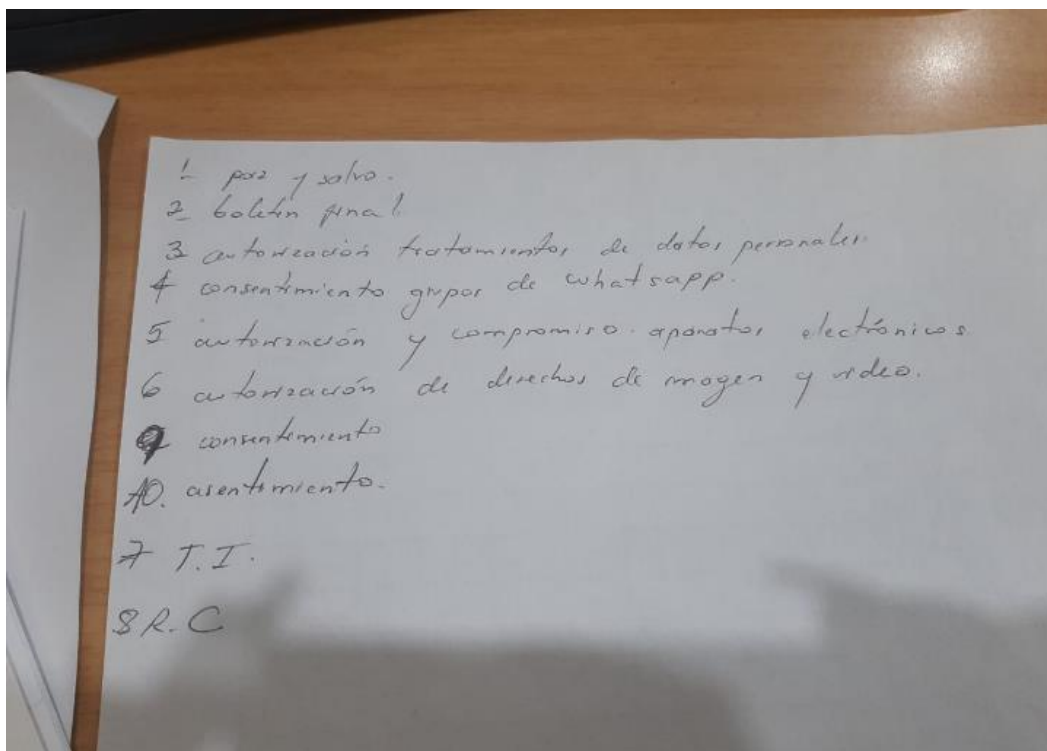 1 paz y salvo.
2 boletin final.
3 autorización tratamientos de datos personales.
4 consentimiento grupos de whatsapp.
5 autorización y compromiso. aparatos electrónicos
6 autorización de derechos de imagen y video.
9 consentimiento
10. asentimiento.
7 T.I.
8 R.C